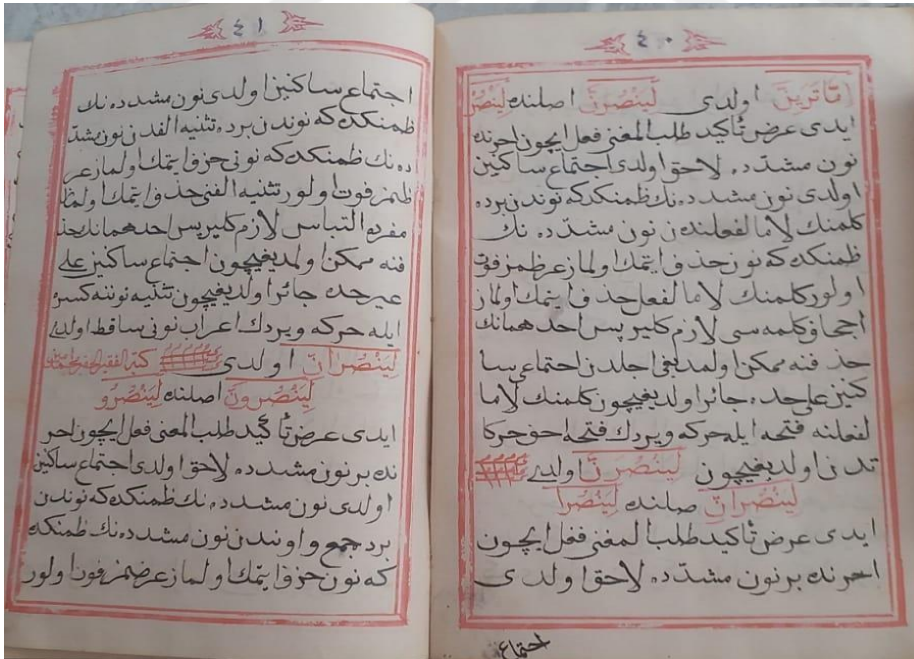 ٤٠
تاترین اولدی لِيَنْصُرَنَّ اصلنده لِيَنْصُرْ
ایدی عرض تأکید طلب المعنی فعل ایچون احرنده
نون مشدده لاحق اولدی اجتماع ساکنین
اولدی نون مشدده نك ظمنكدكه نوندن برده
كلمنك لاما لفعلندن نون مشدده نك
ظمنكده كه نون حذف ایتمك اولماز عرظمز فوت
اولور كلمنك لاما لفعل حذف ایتمك اولماز
اجحاف كلمه سی لازم كلیر پس احد همانك
حذ فنه ممكن اولمدیغی اجلدن اجتماعی سا
كنین علی حده جائز اولدیغیچون كلمنك لاما
لفعلنه فتحه ایله حركه ویردك فتحه احق حركا
تدن اولدیغیچون لِيَنْصُرَنَّ اولدی
لِيَنْصُرَانِّ صلنده لِيَنْصُرَا
ایدی عرض تأكید طلب المعنی فعل ایچون
احرنده بر نون مشدده لاحق اولدی
اجتماع
٤١
اجتماع ساكنین اولدی نون مشدده نك
ظمنكده كه نوندن برده تثنیه الفدن نون مشد
ده نك ظمنكده كه نونی حزف ایتمك اولماز عر
ظمز فوت اولور تثنیه الفنی حذف ایتمك اولماز
مفرده التباس لازم كلیر پس احد همانك حذ
فنه ممكن اولمدیغیچون اجتماع ساكنین علی
غیر حده جائز اولدیغیچون تثنیه نوننه كسره
ایله حركه ویردك اعراب نونی ساقط اولدی
لِيَنْصُرَانِّ اولدی كتبه الفقیر الحقیر
لِيَنْصُرُونَّ اصلنده لِيَنْصُرُو
ایدی عرض تأكید طلب المعنی فعل ایچون احر
نده بر نون مشدده لاحق اولدی اجتماع ساكنین
اولدی نون مشدده نك ظمنكده كه نوندن
برد جمع واوندن نون مشدده نك ظمنكده
كه نون حزف ایتمك اولماز عرضمز فوت اولور